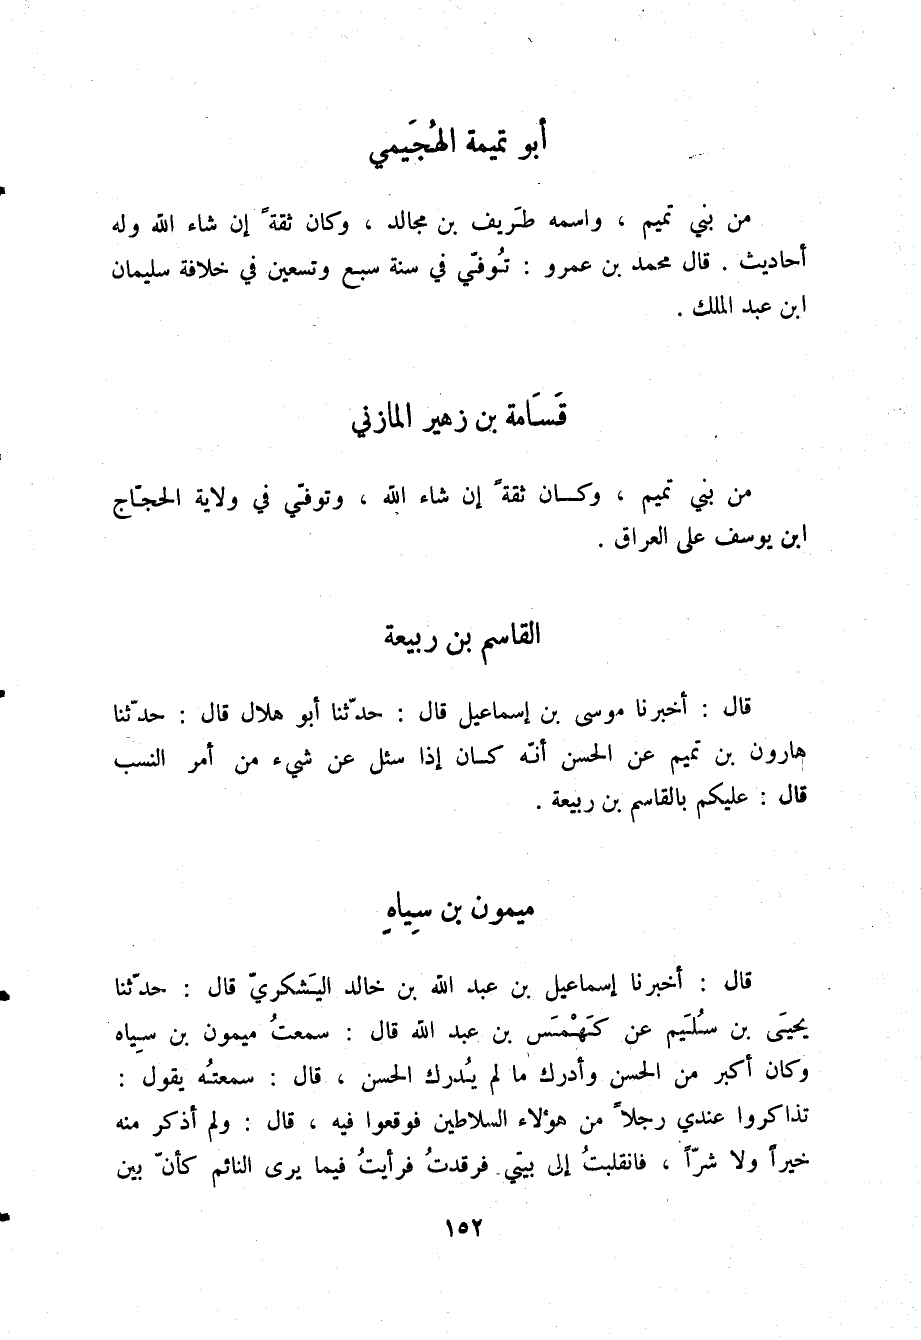 أبو تميمة الهُجَيمي
من بني تميم ، واسمه طَريف بن مجالد ، وكان ثقةً إن شاء الله وله
أحاديث . قال محمد بن عمرو : تُوفّي في سنة سبع وتسعين في خلافة سليمان
ابن عبد الملك .
قَسَامة بن زهير المازني
من بني تميم ، وكان ثقةً إن شاء الله ، وتوفّي في ولاية الحجّاج
ابن يوسف على العراق .
القاسم بن ربيعة
قال : أخبرنا موسى بن إسماعيل قال : حدّثنا أبو هلال قال : حدّثنا
هارون بن تميم عن الحسن أنّه كان إذا سئل عن شيء من أمر النسب
قال : عليكم بالقاسم بن ربيعة .
ميمون بن سِياهٍ
قال : أخبرنا إسماعيل بن عبد الله بن خالد اليَشكريّ قال : حدّثنا
يحيَى بن سُلَيم عن كَهْمَس بن عبد الله قال : سمعتُ ميمون بن سِياه
وكان أكبر من الحسن وأدرك ما لم يُدرك الحسن ، قال : سمعتُه يقول :
تذاكروا عندي رجلاً من هؤلاء السلاطين فوقعوا فيه ، قال : ولم أذكر منه
خيراً ولا شرّاً ، فانقلبتُ إلى بيتي فرقدتُ فرأيتُ فيما يرى النائم كأنّ بين
١٥٢